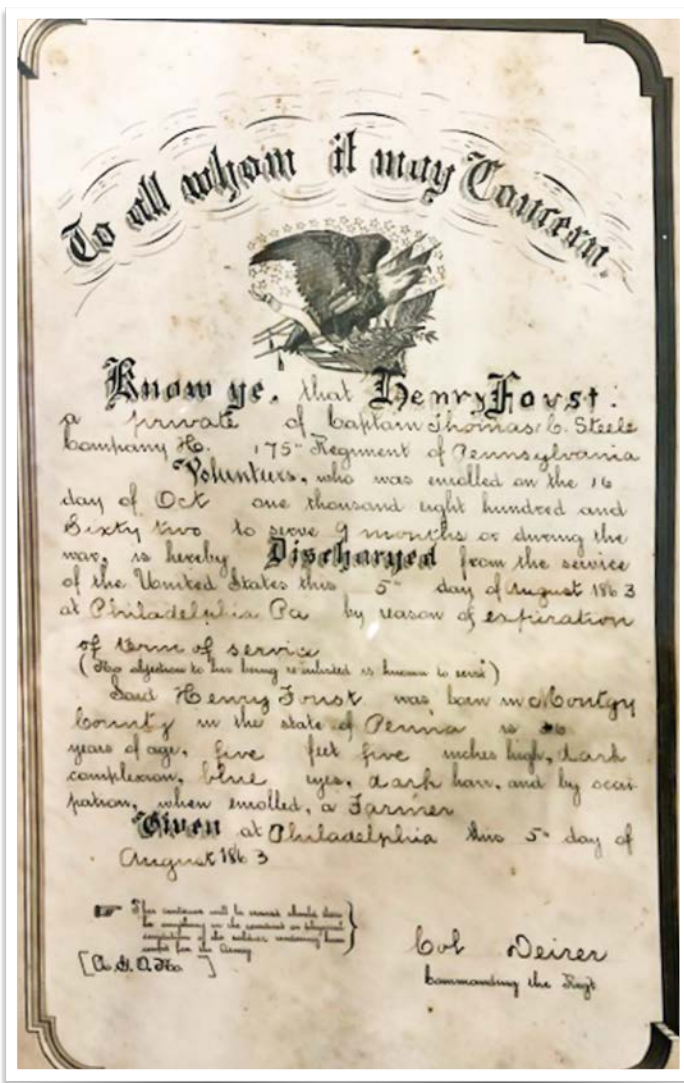 To all whom it may Concern.
Know ye, that Henry Forst.
a private of Captain Thomas C. Steele
Company H. 175" Regiment of Pennsylvania
Volunturs, who was enrolled on the 16
day of Oct one thousand eight hundred and
Sixty two to serve 9 months or during the
war, is hereby Discharged from the service
of the United States this 5" day of August 1863
at Philadelphia Pa by reason of expiration
of term of service
(No objection to his being re-enlisted is known to exist)
Said Henry Forst was born in Montgy
County in the state of Penna is
years of age, five feet five inches high, dark
complexion, blue eyes, dark hair, and by occu
pation, when enrolled, a Farmer
Given at Philadelphia this 5" day of
August 1863
This sentence will be erased should there
be anything in the conduct or physical
condition of the soldier rendering him
unfit for the Army
[A.G.O. No. ]
Col Deirer
Commanding the Regt